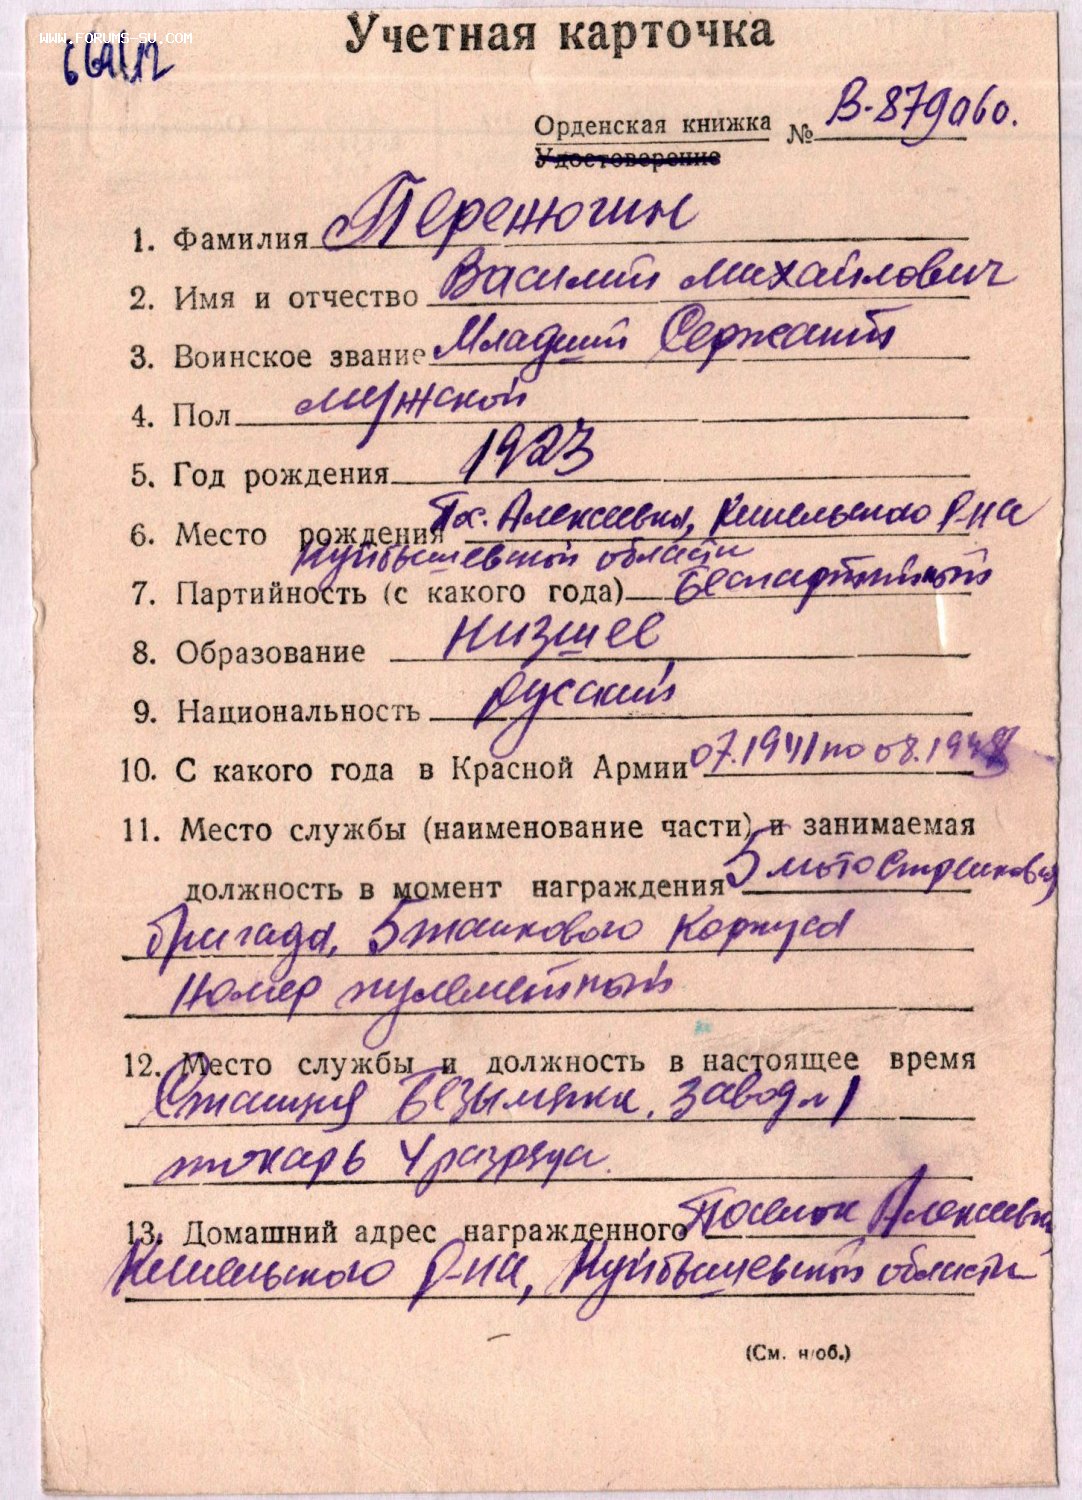 www.forums-su.com
664/12
Учетная карточка
Орденская книжка № В-879060.
Удостоверение
1. Фамилия Перетюгин
2. Имя и отчество Василий Михайлович
3. Воинское звание Младший Сержант
4. Пол мужской
5. Год рождения 1923
6. Место рождения Алексеевка, Кинельского Р-на
Куйбышевской области
7. Партийность (с какого года) беспартийный
8. Образование низшее
9. Национальность русский
10. С какого года в Красной Армии 07.1941 по 08.194
11. Место службы (наименование части) и занимаемая
должность в момент награждения 5 мотострелковая
бригада, 5 танкового корпуса
номер пулеметный
12. Место службы и должность в настоящее время
Станция Безымянка, завод №1
токарь 4 разряда.
13. Домашний адрес награжденного Поселок Алексеевка
Кинельского Р-на, Куйбышевской области
(См. н/об.)